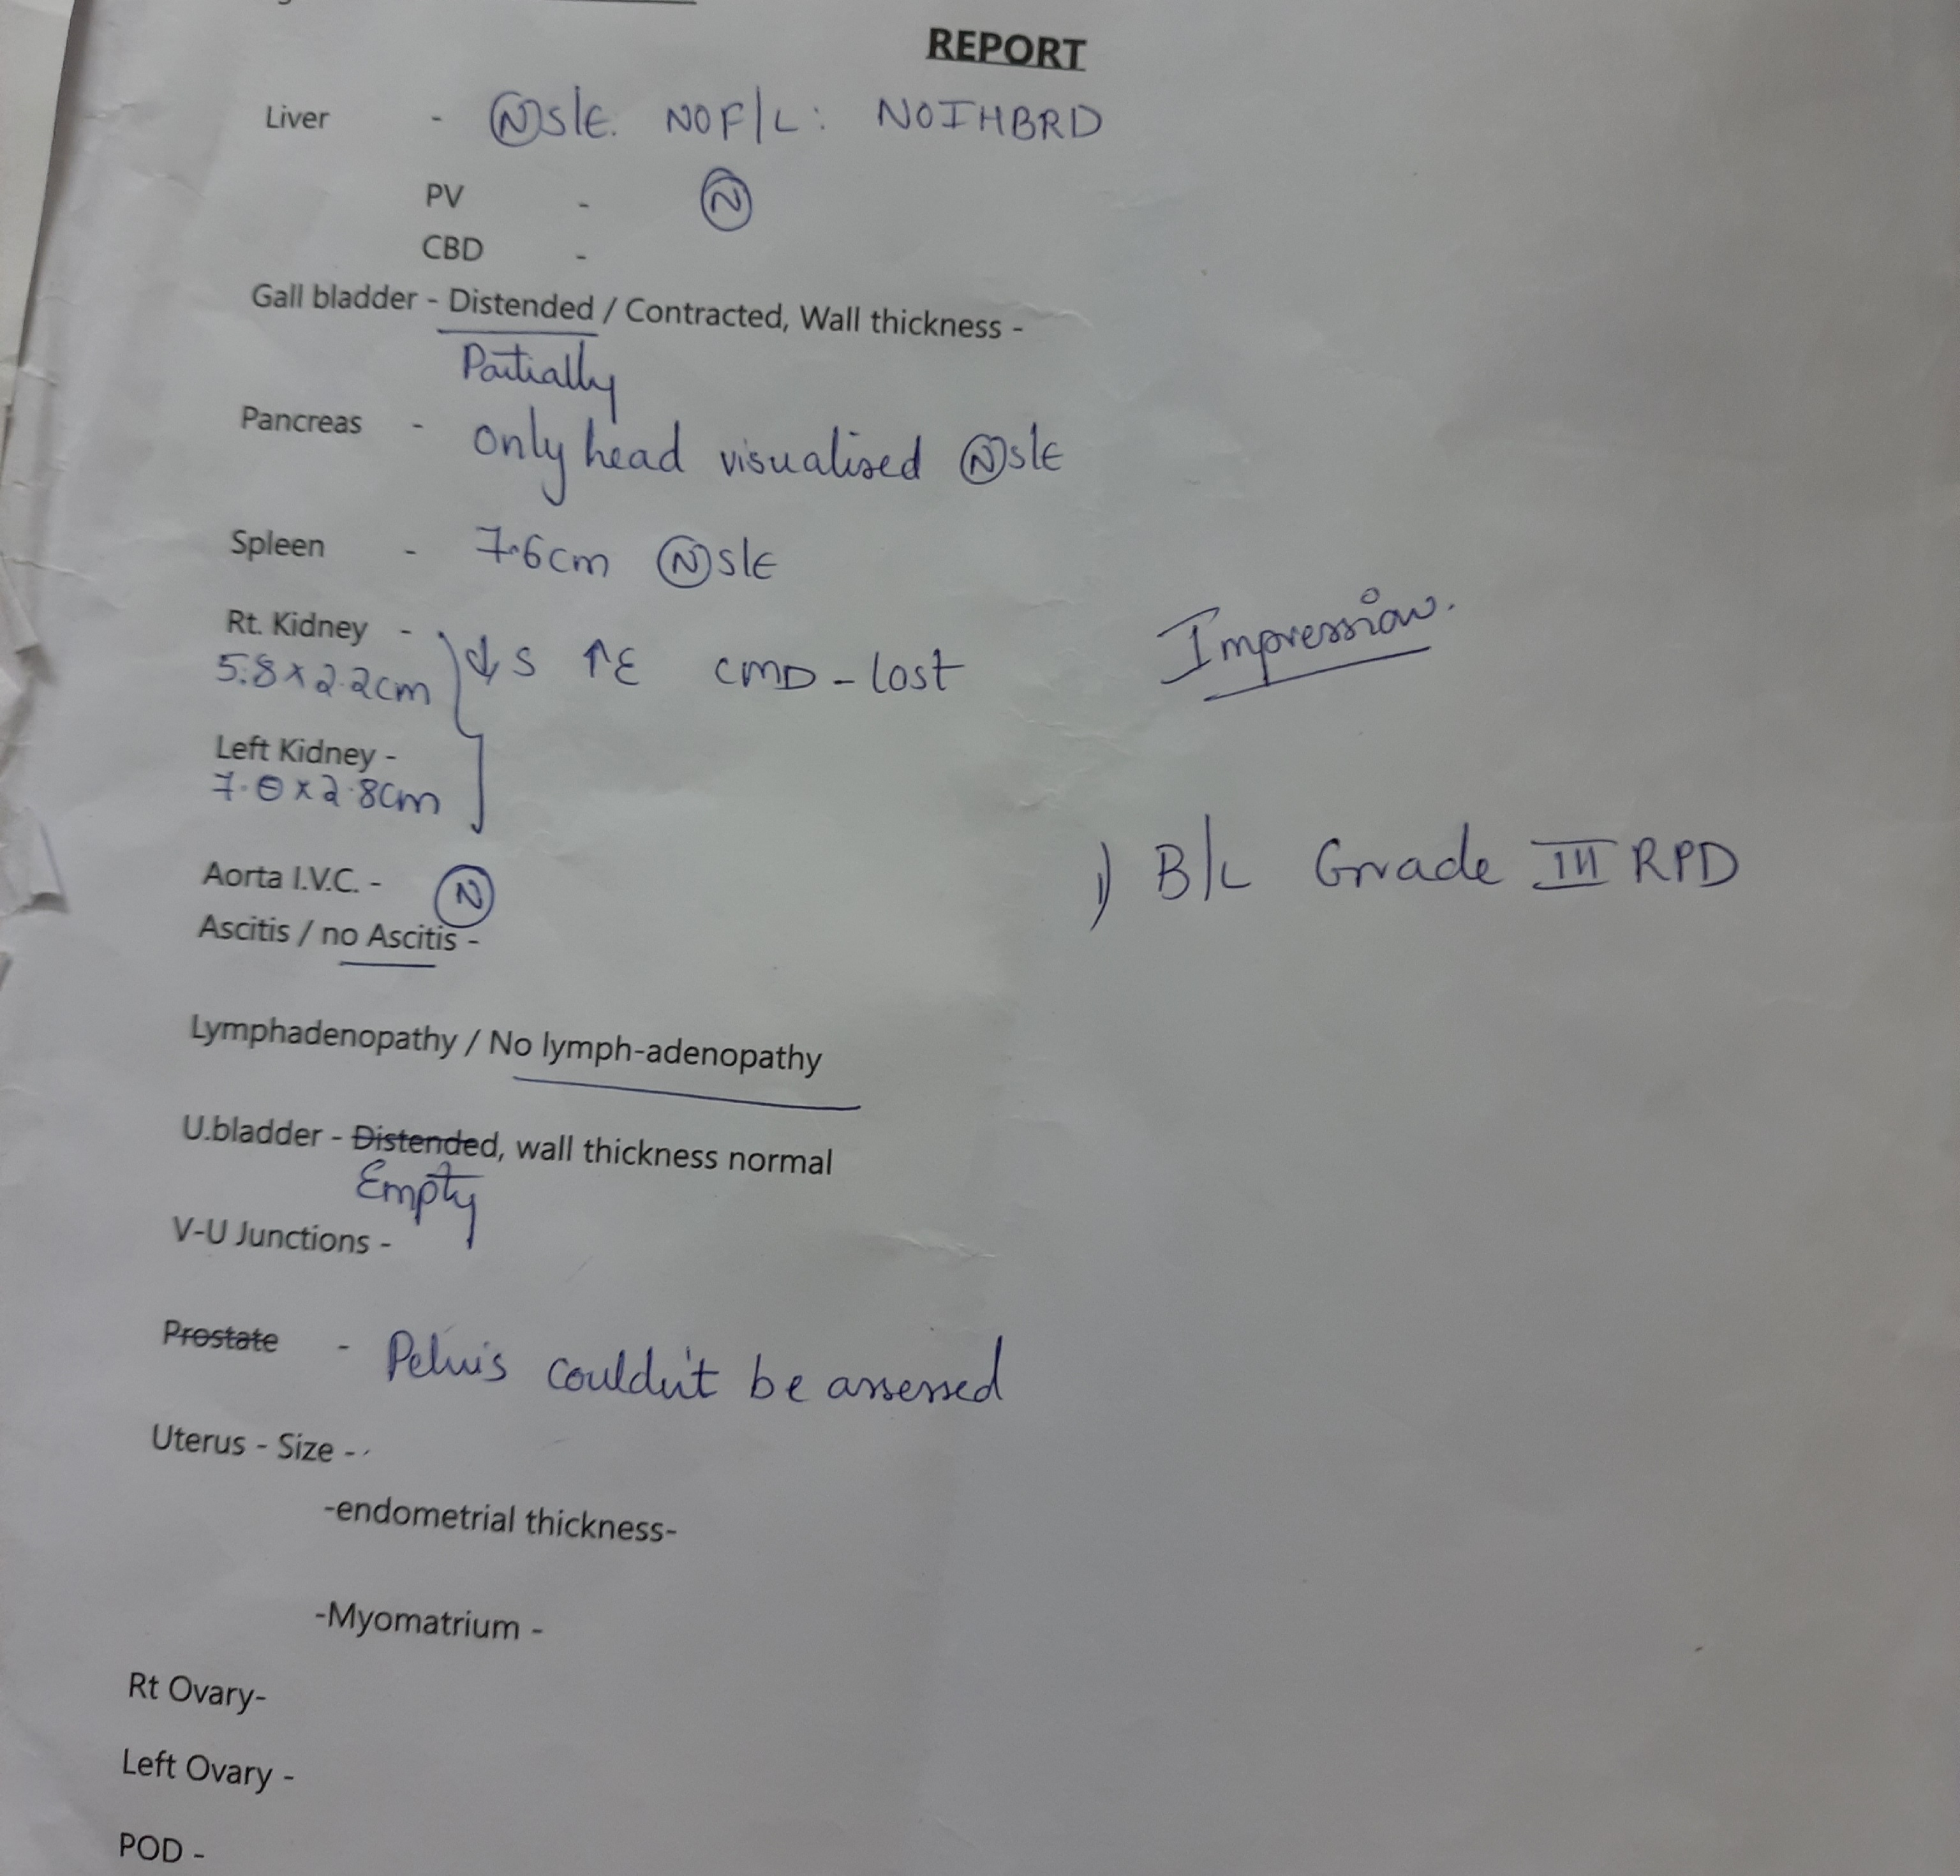 REPORT
Liver - Ⓝ S/E. NO F/L: NO IHBRD
PV - Ⓝ
CBD -
Gall bladder - Distended / Contracted, Wall thickness -
Partially
Pancreas - only head visualised Ⓝ S/E
Spleen - 7.6cm Ⓝ S/E
Rt. Kidney - ↓S ↑E CMD - lost
5.8 x 2.2cm
Impression.
Left Kidney -
7.0 x 2.8cm
1) B/L Grade III RPD
Aorta I.V.C. - Ⓝ
Ascitis / no Ascitis -
Lymphadenopathy / No lymph-adenopathy
U.bladder - Distended, wall thickness normal
Empty
V-U Junctions -
Prostate - Pelvis couldn't be assessed
Uterus - Size -
-endometrial thickness-
-Myomatrium -
Rt Ovary-
Left Ovary -
POD -